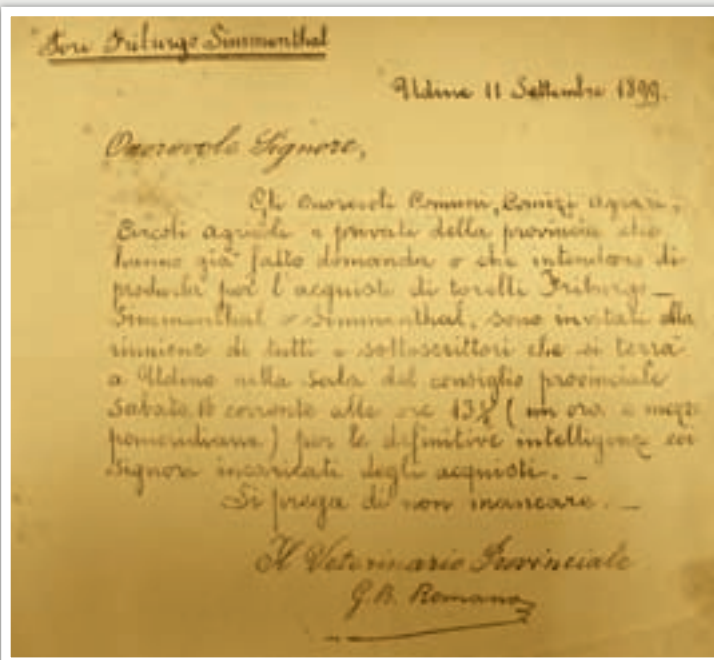 Tori Friburgo Simmenthal
Udine 11 Settembre 1899.
Onorevole Signore,
Gli Onorevoli Comuni, Comizi agrari,
Circoli agricoli e privati della provincia che
hanno già fatto domanda o che intendono di
produrla per l'acquisto di torelli Friburgo-
Simmenthal e Simmenthal, sono invitati alla
riunione di tutti i sottoscrittori che si terrà
a Udine nella sala del consiglio provinciale
Sabato 16 corrente alle ore 13½ (un ora e mezza
pomeridiane) per le definitive intelligenze coi
Signori incaricati degli acquisti. _
Si prega di non mancare. _
Il Veterinario Provinciale
G.B. Romano